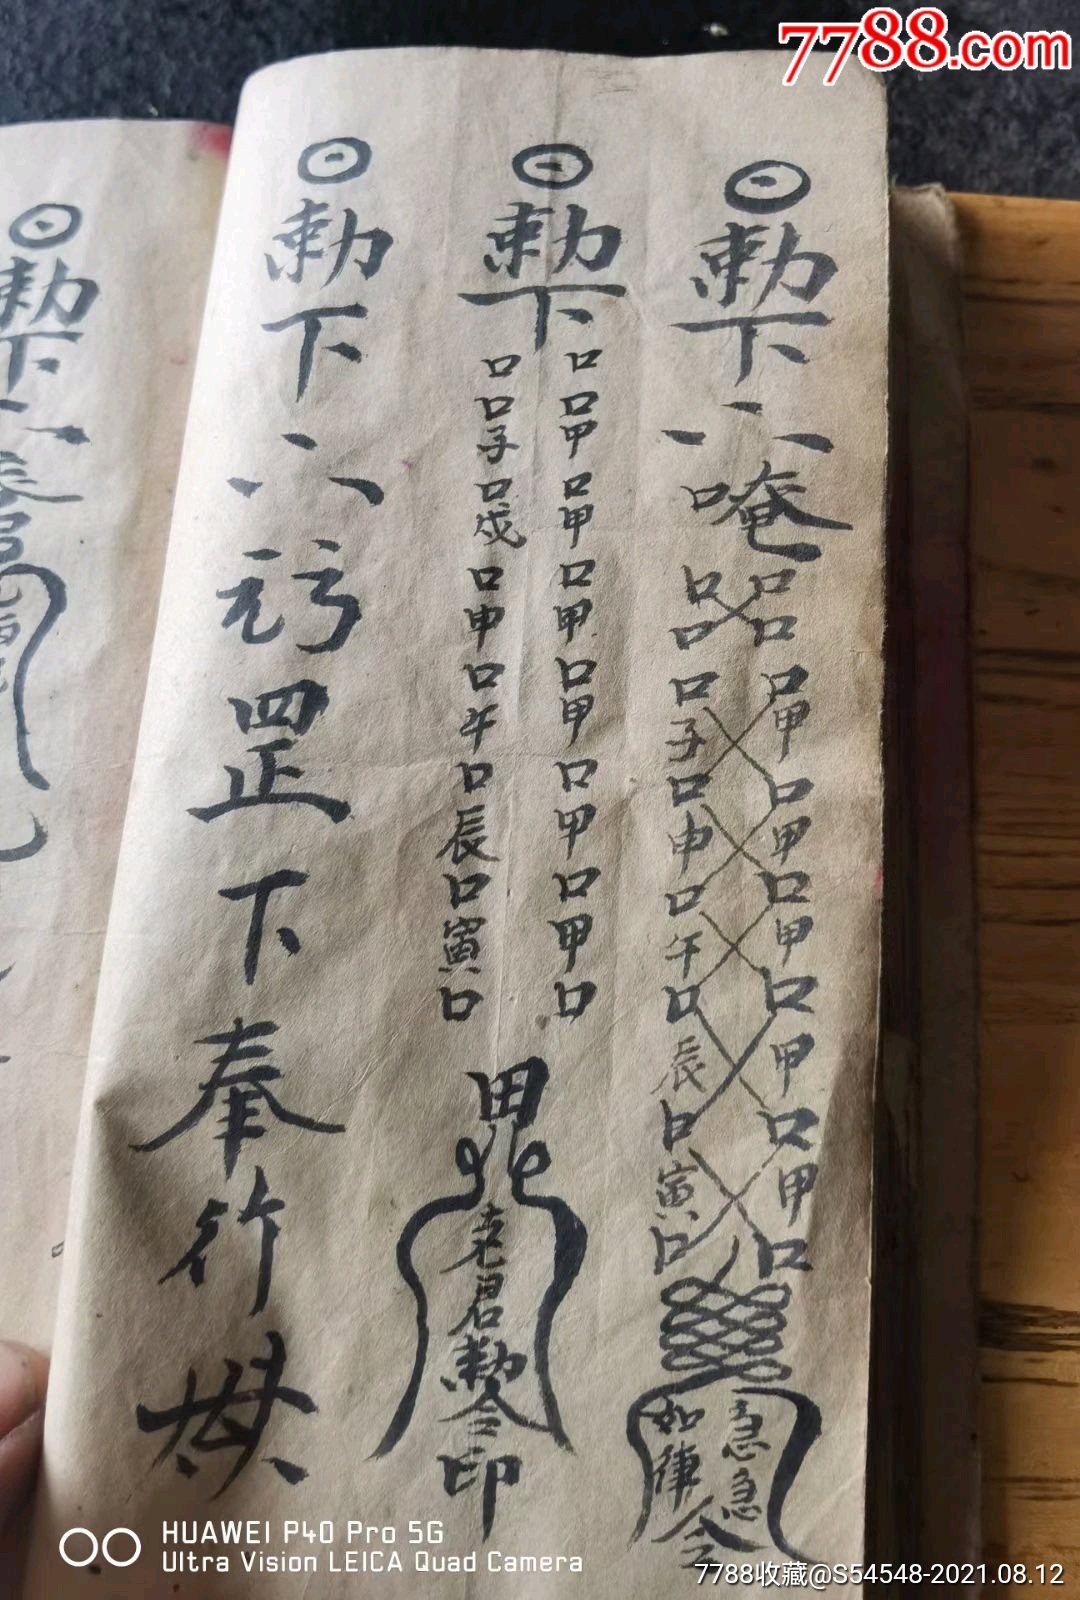 7788.com
勅下
唵
口口
口口
口甲口甲口甲口甲口甲口
口子口申口午口辰口寅口
急急
如律令
勅下
口口甲口甲口甲口甲口甲口甲口
口口子口戌口申口午口辰口寅口
老君勅令印
勅下
罡下奉行
勅下
HUAWEI P40 Pro 5G
Ultra Vision LEICA Quad Camera
7788收藏@S54548-2021.08.12